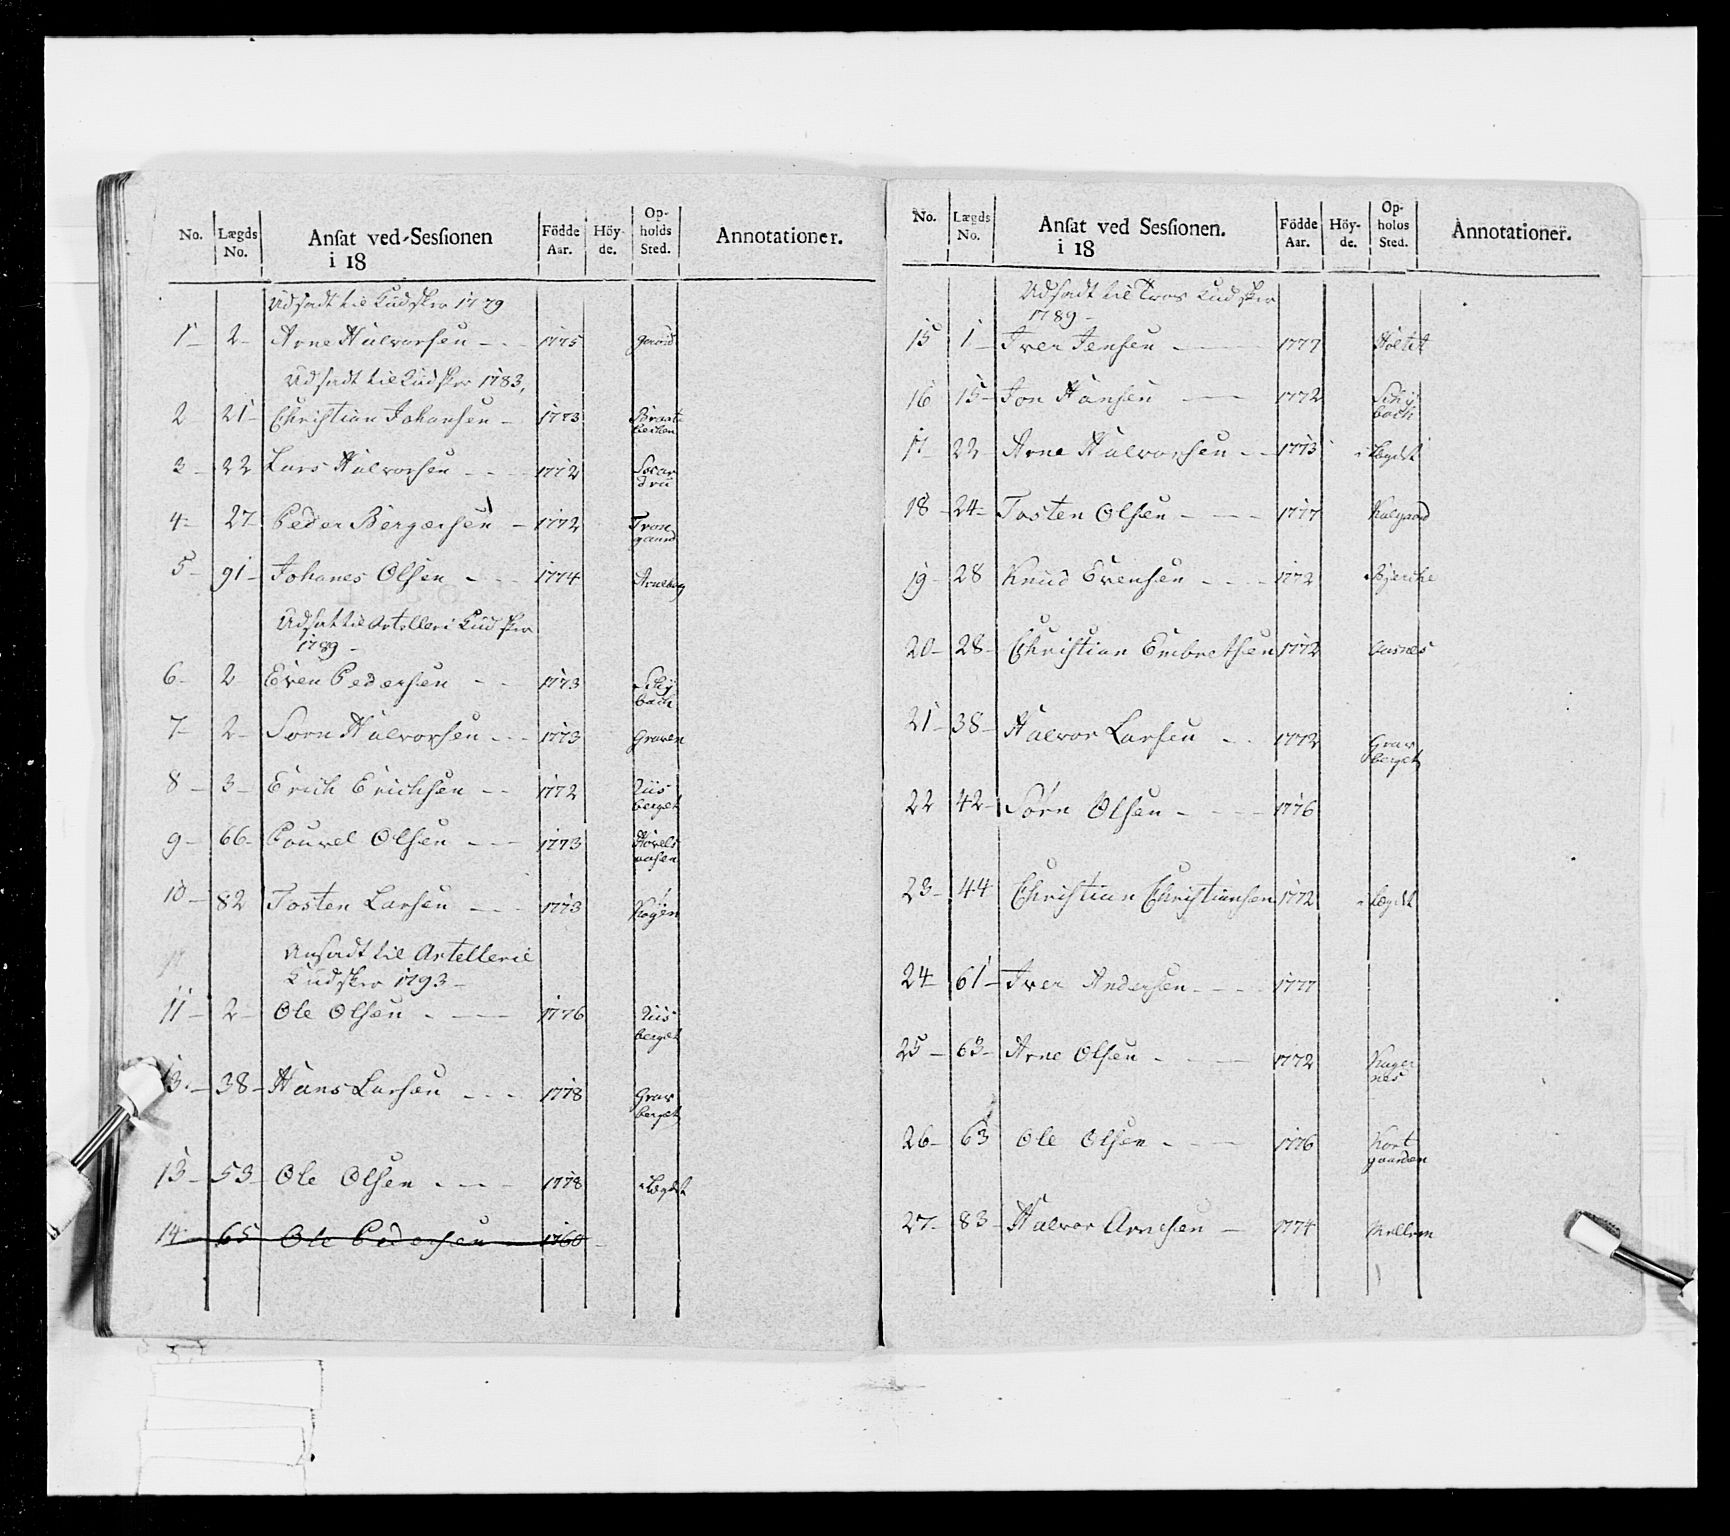 No. Lægds No. Ansat ved Sessionen i 18 Födde Aar. Höy-de. Op-holds Sted. Annotationer.
Udsadt til Kudsker 1779
1 2 Arne Halvorsen 1775 gaard
Udsadt til Kudsker 1783,
2 21 Christian Johansen 1773 Braat
3 22 Lars Halvorsen 1772
4 27 Peder Bergersen 1772 Tron gaard
5 91 Johanes Olsen 1774 Arneberg
Udsat til Artelleri Kudsker
1789
6 2 Even Pedersen 1773 Schÿ bach
7 2 Sørn Halvorsen 1773 Graven
8 3 Erich Erichsen 1772 Riis berget
9 66 Pouvel Olsen 1773 Hovels aasen
10 82 Tosten Larsen 1773
11
Ansadt til Artellerie
Kudsker 1793
11 2 Ole Olsen 1776 Riis berget
13. 38 Hans Larsen 1778 Grav berget
13 53 Ole Olsen 1778 i Lægdet
14 65 Ole Pedersen 1760
No. Lægds No. Ansat ved Sessionen. i 18 Födde Aar. Höy-de. Op-holds Sted. Annotationer.
Udsadt til Tros Kudsker
1789
15 1 Iver Jensen 1777 Holtet
16 15 Jon Hansen 1772 Schÿ bach
17 22 Arne Halvorsen 1773 i Lægdet
18 24 Tosten Olsen 1777 Kalgaard
19 28 Knud Evensen 1772 Bjercke
20 28 Christian Embretsen 1772 Aasnes
21 38 Halvor Larsen 1772 Grav berget
22 42 Sörn Olsen 1776
23 44 Christian Christiansen 1772 i Lægdet
24 61 Iver Andersen 1777
25 63 Arne Olsen 1772 Kager nes
26 63 Ole Olsen 1776 Nort gaarden
27 83 Halvor Arnesen 1774 Mellem